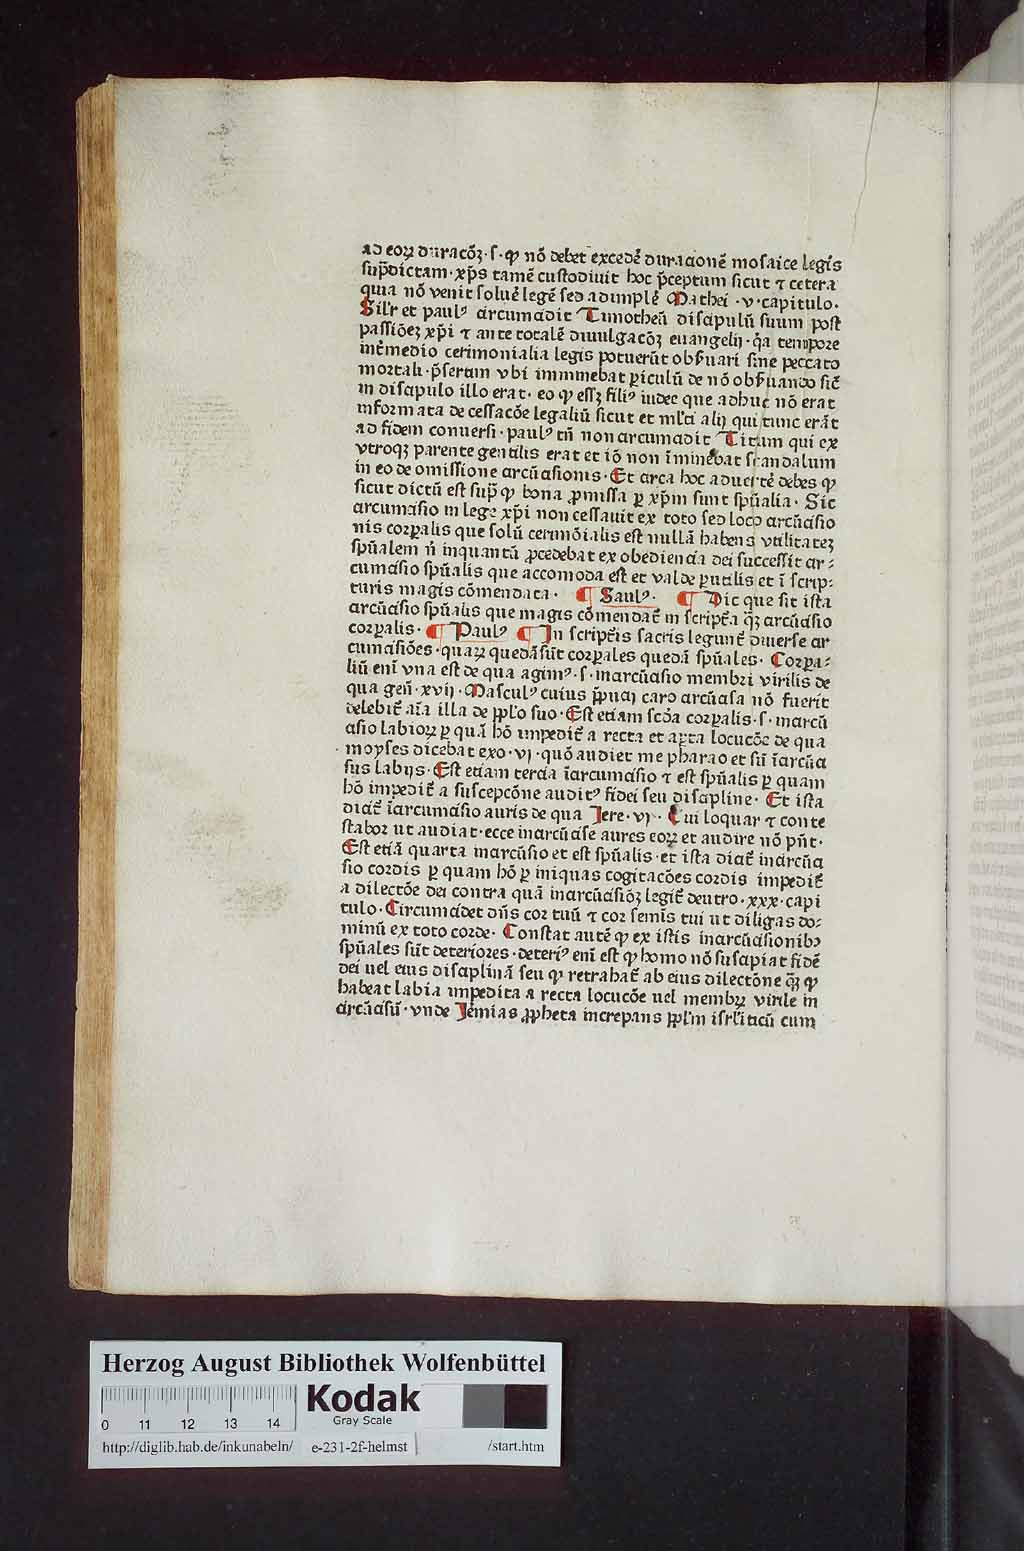 ad eoꝝ duracōꝫ · s · ꝙ nō debet excedē duracionē mosaice legis
sup̄dictam · xp̄s tamē custodiuit hoc p̄ceptum sicut ⁊ cetera
quia nō venit soluē legē sed adimplē Mathei · v · capitulo ·
Sil̄r et paulꝰ circumcidit Timotheū discipulū suum post
passiōeꝫ xp̄i ⁊ ante totalē diuulgacōꝫ euangelij · q̄a tempore
int̄medio cerimonialia legis potuerūt obẜuari sine peccato
mortali · p̄sertim vbi imminebat ꝑiculū de nō obẜuando sic̄
in discipulo illo erat · eo ꝙ esꝫ filiꝰ iudee que adhuc nō erat
informata de cessacōe legaliū sicut et ml̄ti alij qui tunc erāt
ad fidem conuersi · paulꝰ tn̄ non circumcidit Titum qui ex
vtroqꝫ parente gentilis erat et iō non īminebat scandalum
in eo de omissione circūcisionis · Et circa hoc aduertē debes ꝙ
sicut dictū est sup̄ ꝙ bona ꝓmissa ꝑ xp̄m sunt sp̄ualia · Sic
circumcisio in lege xp̄i non cessauit ex toto sed loco circūcisio
nis corꝑalis que solū cerimōialis est nullā habens vtilitateꝫ
sp̄ualem n̄ inquantū ꝓcedebat ex obediencia dei successit cir⸗
cumcisio sp̄ualis que accomoda est et valde ꝑutilis et ī scrip⸗
turis magis cōmendata · ¶ Saulꝰ · ¶ Dic que sit ista
circūcisio sp̄ualis que magis cōmendat̄ in script̄a q̄ꝫ circūcisio
corꝑalis · ¶ Paulꝰ ¶ In script̄is sacris legunt̄ diuerse cir
cumcisiōes · quaꝝ quedā sūt corꝑales quedā sp̄uales · Corꝑa⸗
liū enī vna est de qua agimꝰ · s · incircūcisio membri virilis de
qua gen̄ · xvij · Masculꝰ cuius p̄puaj caro circūcisa nō fuerit
delebit̄ aīa illa de pp̄lo suo · Est etiam scd̄a corꝑalis · s · incircū
cisio labioꝝ ꝑ quā hō impedit̄ a recta et aꝑta locucōe de qua
moyses dicebat exo · vj · quō audiet me pharao et sū īcircūci
sus labijs · Est etiam tercia īcircumcisio ⁊ est sp̄ualis ꝑ quam
hō impedit̄ a suscepcōne auditꝰ fidei seu discipline · Et ista
dicit̄ īcircumcisio auris de qua Jere · vj · Cui loquar ⁊ conte
stabor ut audiat · ecce incircūcise aures eoꝝ et audire nō pn̄t ·
Est etiā quarta incircūcisio et est sp̄ualis · et ista dicit̄ incircūci
sio cordis ꝑ quam hō ꝑ iniquas cogitacōes cordis impedit̄
a dilectōe dei contra quā incircūcisiōꝫ legit̄ deutro · xxx · capi
tulo · Circumcidet dn̄s cor tuū ⁊ cor seminis tui ut diligas do⸗
minū ex toto corde · Constat autē ꝙ ex istis incircūcisionibꝫ
sp̄uales sūt deteriores · deteriꝰ enī est ꝙ homo nō suscipiat fidē
dei uel eius disciplinā seu ꝙ retrahat̄ ab eius dilectōne q̄ꝫ ꝙ
habeat labia impedita a recta locucōe uel membꝝ virile in
circūcisū · vnde Jēmias ꝓpheta increpans pp̄lm isrl̄iticū cum
Herzog August Bibliothek Wolfenbüttel
Kodak
Gray Scale
0 11 12 13 14
http://diglib.hab.de/inkunabeln/ e-231-2f-helmst /start.htm